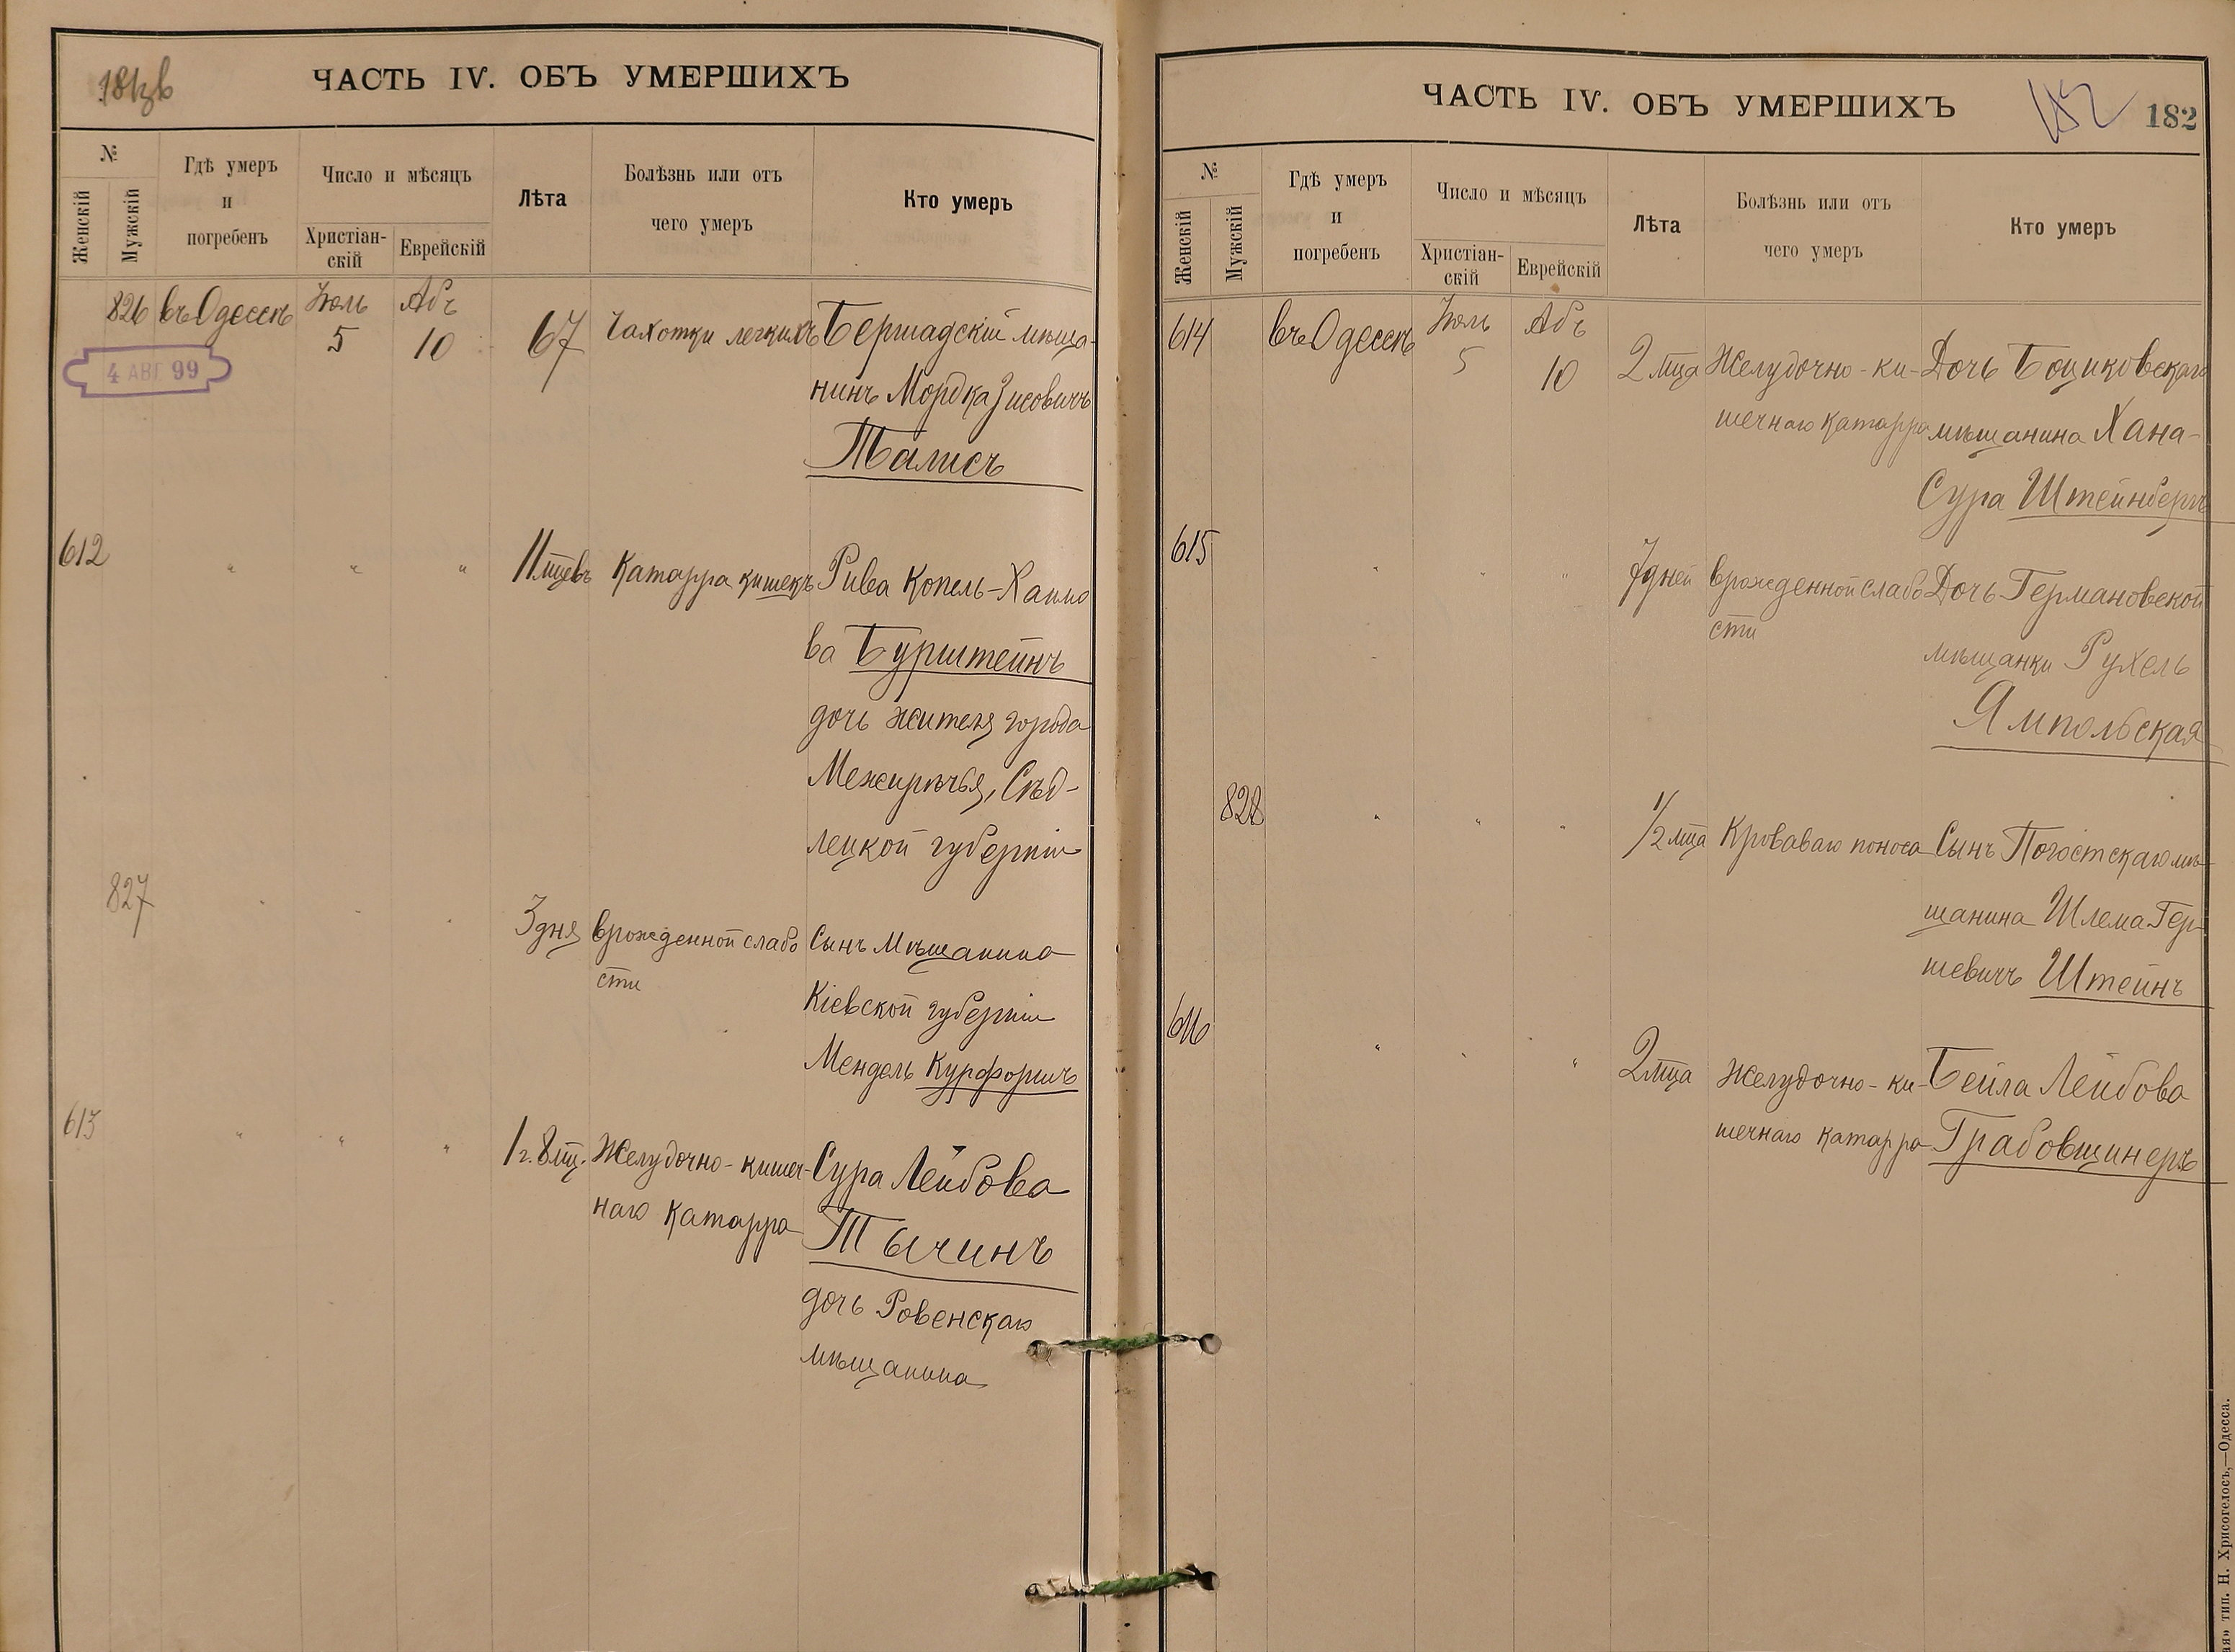 181 об
ЧАСТЬ IV. ОБЪ УМЕРШИХЪ
№
Женскій
Мужскій
Гдѣ умеръ
и
погребенъ
Число и мѣсяцъ
Христіан-
скій
Еврейскій
Лѣта
Болѣзнь или отъ
чего умеръ
Кто умеръ
826 въ Одессѣ Іюль 5 Абъ 10 67 Чахотки легкихъ Бершадскій мѣща-
4 АВГ 99
нинъ Мордка Зисовичъ
Талисъ
612 " " " 11 мцевъ Катарра кишекъ Рива Копель-Хаимо
ва Бурштейнъ
дочь жителя города
Межирѣчья, Сѣд-
лецкой губерніи
827 " " " 3 дня врожденной слабо Сынъ Мѣщанина
сти
Кіевской губерніи
Мендель Курфоричъ
613 " " " 1 г. 8 мц. Желудочно-кишеч- Сура Лейбова
наго катарра Тычинъ
дочь Ровенскаго
мѣщанина
ЧАСТЬ IV. ОБЪ УМЕРШИХЪ
182
182
№
Женскій
Мужскій
Гдѣ умеръ
и
погребенъ
Число и мѣсяцъ
Христіан-
скій
Еврейскій
Лѣта
Болѣзнь или отъ
чего умеръ
Кто умеръ
614 въ Одессѣ Іюль 5 Абъ 10 2 мца Желудочно-ки- Дочь Боциковскаго
шечнаго катарра мѣщанина Хана-
Сура Штейнбергъ
615 " " " 7 дней врожденной слабо Дочь Германовской
сти
мѣщанки Рухель
Ямпольская
828 " " " 1/2 мца Кроваваго поноса Сынъ Погостскаго мѣ-
щанина Шлема Гер-
шевичъ Штейнъ
616 " " " 2 мца Желудочно-ки- Бейла Лейбова
шечнаго катарра Грабовщинеръ
тип. Н. Хрисогелосъ,—Одесса.